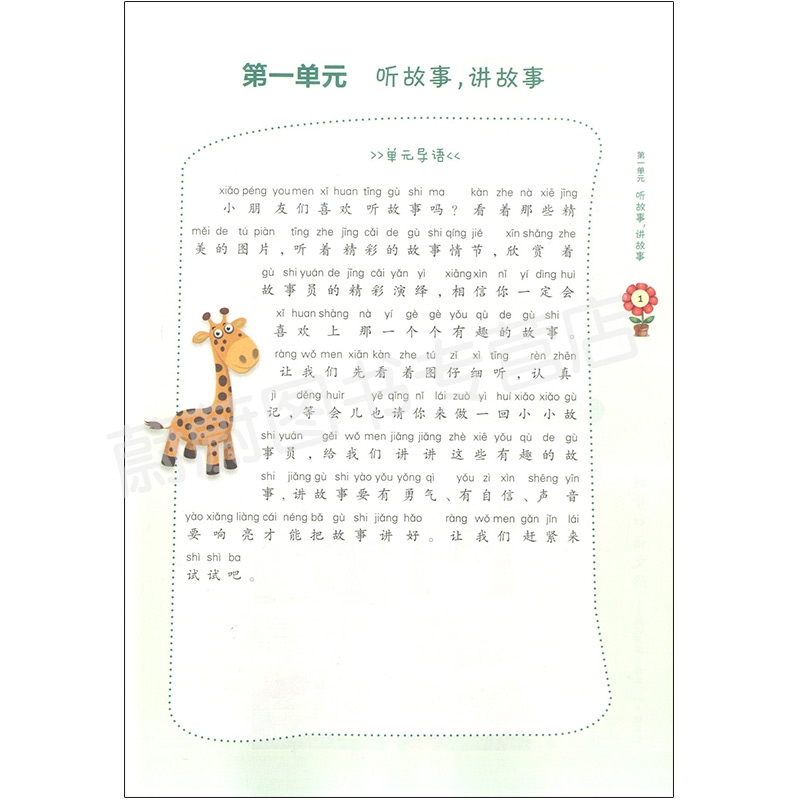 第一单元 听故事,讲故事
>>单元导语<<
xiǎo péng you men xǐ huan tīng gù shi ma kàn zhe nà xiē jīng
小朋友们喜欢听故事吗?看着那些精
měi de tú piàn tīng zhe jīng cǎi de gù shi qíng jié xīn shǎng zhe
美的图片,听着精彩的故事情节,欣赏着
gù shi yuán de jīng cǎi yǎn yì xiāng xìn nǐ yí dìng huì
故事员的精彩演绎,相信你一定会
xǐ huan shàng nà yí gè gè yǒu qù de gù shi
喜欢上那一个个有趣的故事。
ràng wǒ men xiān kàn zhe tú zǐ xì tīng rèn zhēn
让我们先看着图仔细听,认真
jì děng huìr yě qǐng nǐ lái zuò yì huí xiǎo xiǎo gù
记,等会儿也请你来做一回小小故
shi yuán gěi wǒ men jiǎng jiǎng zhè xiē yǒu qù de gù
事员,给我们讲讲这些有趣的故
shi jiǎng gù shi yào yǒu yǒng qì yǒu zì xìn shēng yīn
事,讲故事要有勇气、有自信、声音
yào xiǎng liàng cái néng bǎ gù shi jiǎng hǎo ràng wǒ men gǎn jǐn lái
要响亮才能把故事讲好。让我们赶紧来
shì shì ba
试试吧。
第一单元 听故事,讲故事
1
蔚蔚图书专营店